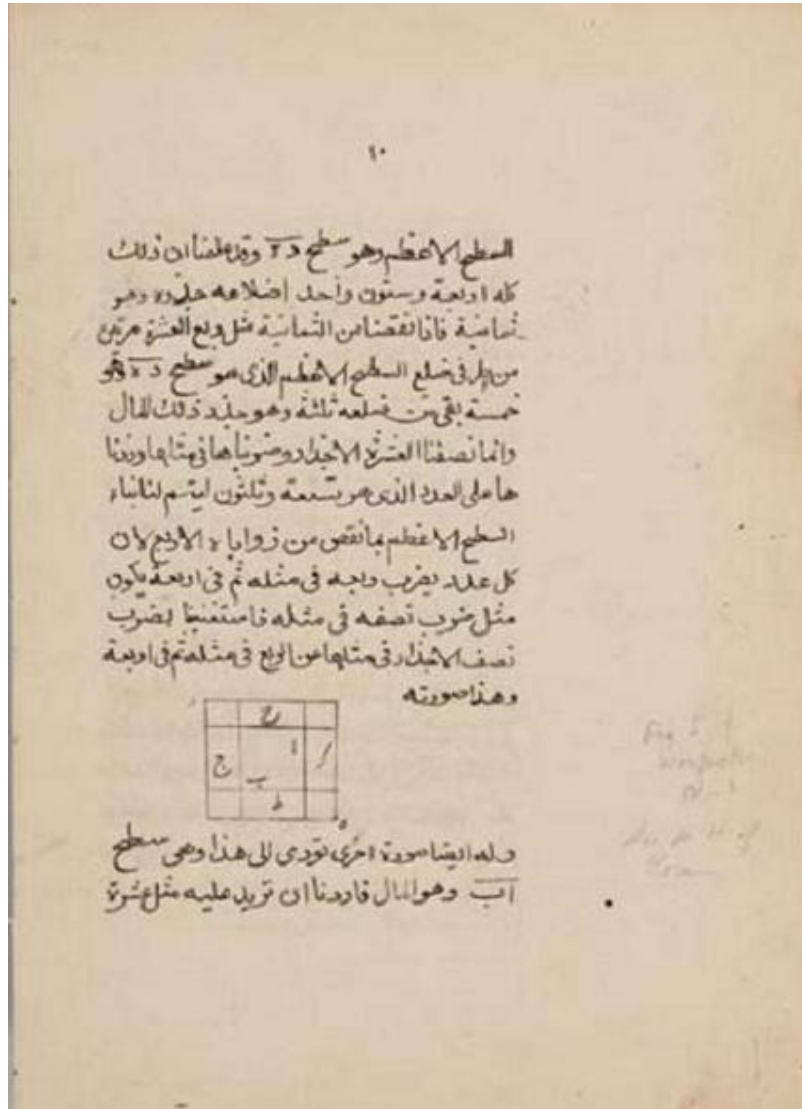 ١٠
السطح الاعظم وهو سطح د ه وقد علمنا ان ذلك
كله اربعة وستون واحد اضلاعه جذره وهو
ثمانية فاذا نقصنا من الثمانية مثل ربع العشرة مرتين
من في ضلع السطح الاعظم الذى هو سطح د ه وهو
خمسة بقى من ضلعه ثلثة وهو جذر ذلك المال
وانما نصفنا العشرة الاجذار وضربناها فى مثلها وزدنا
ها على العدد الذى هو تسعة وثلثون ليتم لنا بناء
السطح الاعظم بما نقص من زواياه الاربع لان
كل عدد يضرب ربعه فى مثله ثم فى اربعة يكون
مثل ضرب نصفه فى مثله فاستغنينا بضرب
نصف الاجذار فى مثلها عن الربع فى مثله ثم فى اربعة
وهذا صورته
ح
ج
ا
ب
ط
ه
وله ايضا صورة اخرى تودى الى هذا وهى سطح
اب وهو المال فاردنا ان نزيد عليه مثل عشرة